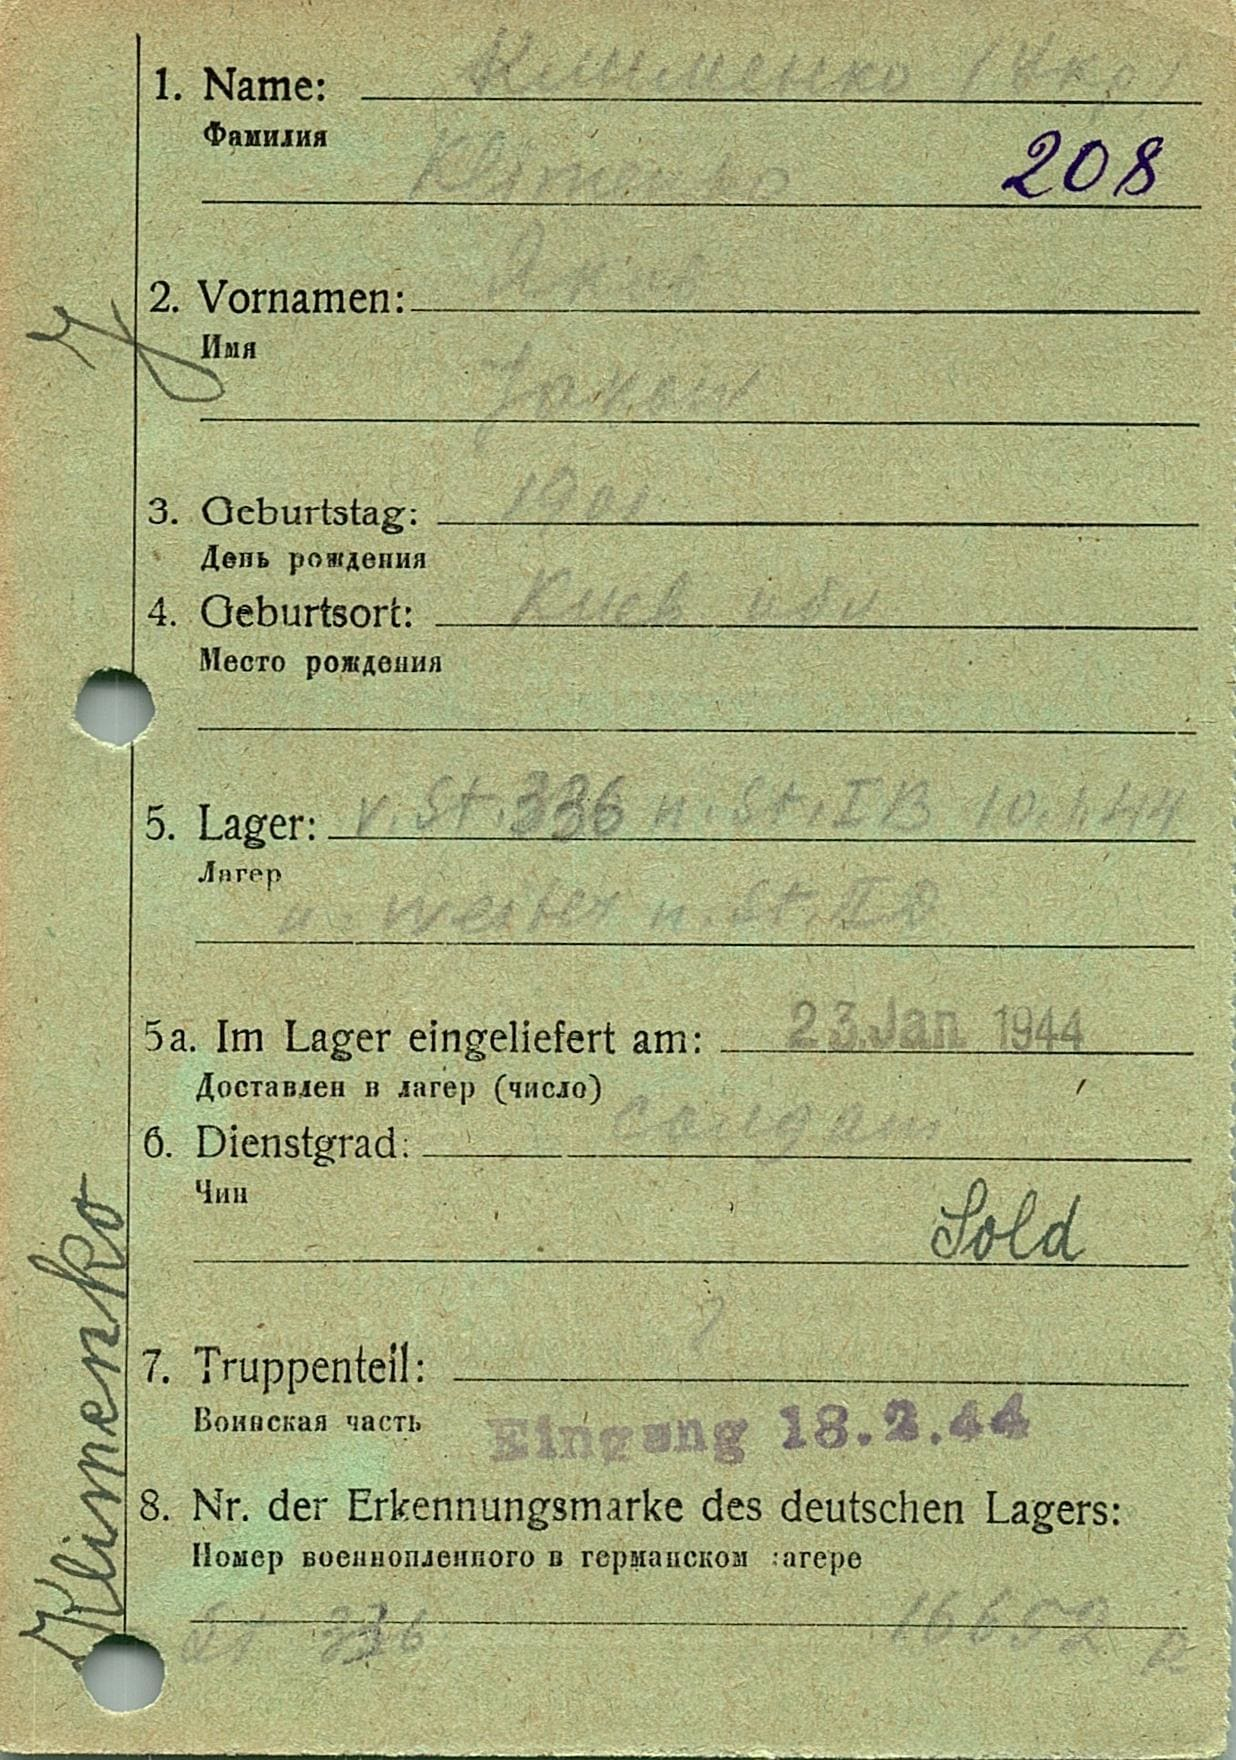 1. Name: Клименко (Укр)
Фамилия
Klimenko 208
2. Vornamen: Яков
Имя
Jakow
3. Geburtstag: 1901
День рождения
4. Geburtsort: Киев обл
Место рождения
5. Lager: v. St. 336 n. St. I B 10.1.44
Лагер
u. weiter n. St. II D
5a. Im Lager eingeliefert am: 23. Jan 1944
Доставлен в лагер (число)
6. Dienstgrad: солдат
Чин
Sold
7. Truppenteil: ?
Воинская часть Eingang 18.2.44
8. Nr. der Erkennungsmarke des deutschen Lagers:
Номер военнопленного в германском лагере
St 336 16652
Klimenko J